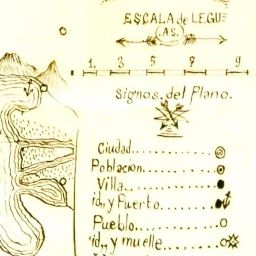 ESCALA de LEGUE
(AS.)
1. 3 5 7 9
Signos. del Plano.
Ciudad
Población
Villa
id,, y Puerto
Pueblo
id,, y muelle